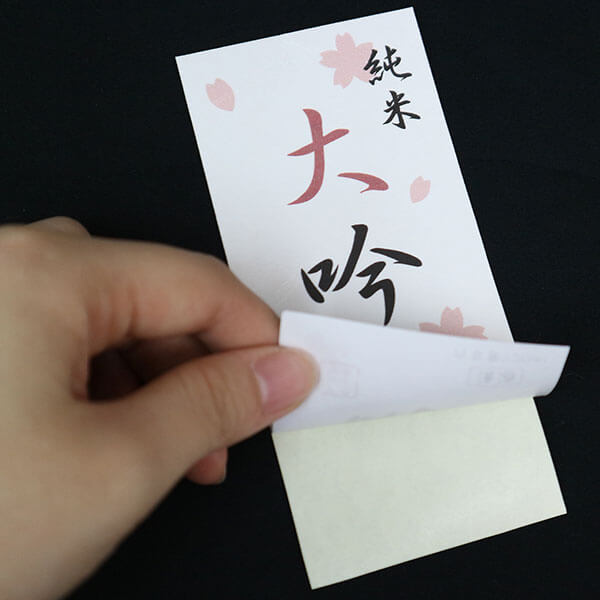 純米
大吟